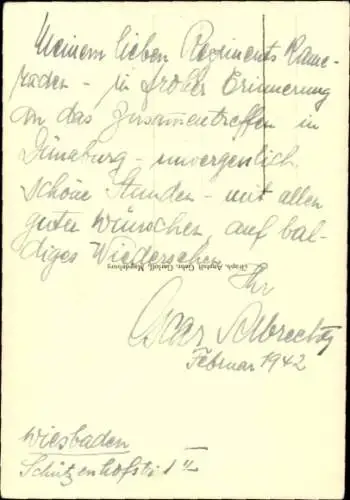 Meinem lieben Regiments Kame-
raden – in froher Erinnerung
an das Zusammentreffen in
Dünaburg – unvergenlich
schöne Stunden – mit allen
guten Wünschen, auf bal-
diges Wiedersehen
Graph. Anstalt Gebr. Garloff, Magdeburg
Ihr
Oscar Albrecht
Februar 1942
Wiesbaden
Schützenhofstr. 1